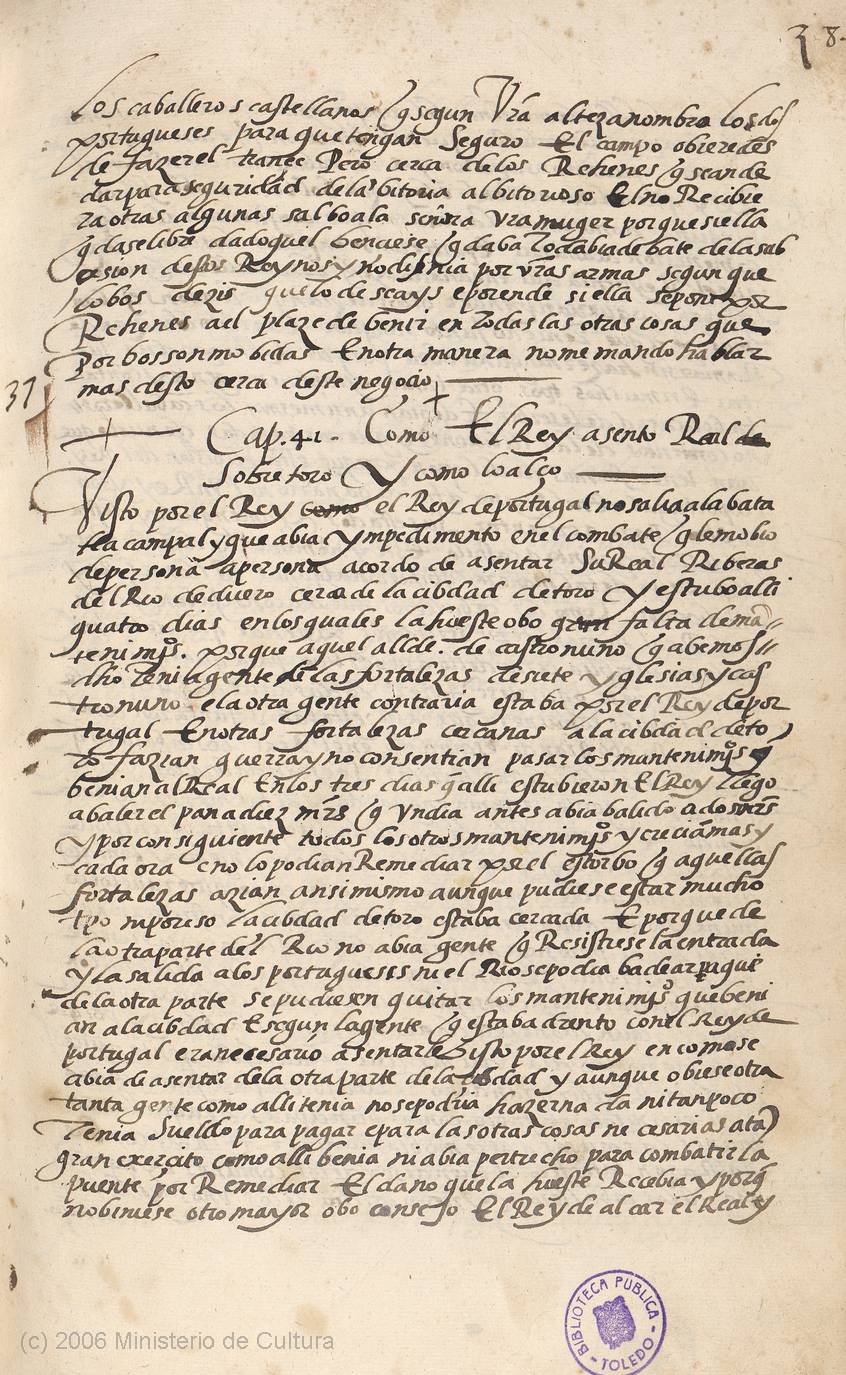 38.
los caballeros castellanos q segun Vrã alteza nombra los dos
portugueses para que tengan Seguro El campo obieredes
de fazer el trançe Pero cerca de los Rehenes q sean de
dar para seguridad de la bitoria al bitorioso El no Recibie
ra otras algunas salbo a la señora Vra muger porque si ella
q dase libre dado quel benciese q daba Todabia debate de la sub
cesion destos Reynos y no difinia por vrãs armas segun que
lobos dezis que lo deseays e por ende si ella se pone por
Rehenes a el plaze de benir en Todas las otras cosas que
Por bos son mobidas E notra manera no me mando hablar
mas desto cerca deste negocio
37
Cap. 41. Como El Rey asento Real de
Sobre toro Y como lo alço
Visto por el Rey como el Rey de portugal no salia a la bata
lla campal y que abia Ympedimento en el combate q le mobio
de persona a persona acordo de asentar Su Real Riberas
del Rio de duero cerca de la cibdad de toro Y estubo alli
quatro dias en los quales la hueste obo gran falta de ma
tenimjos. porque aquel allde. de castronuño q abemos
dho Tenia gente de las fortalezas de siete yglesias y cas
tronuño e la otra gente contraria estaba por el Rey de por
tugal E notras fortalezas cercanas a la cibdad de to
ro fazian guerra y no consentian pasar los mantenimjos q
benian al Real En los tres dias q alli estubieron El Rey llego
a baler el pan a diez mrs q Vn dia antes abia balido a dos mrs
y por consiguiente todos los otros mantenimjos y crecia mas y
cada ora e no lo podian Remediar por el estorbo q aquellas
fortalezas azian ansi mismo aunque pudiese estar mucho
tpo ni por eso la cibdad de toro estaba cercada E porque de
la otra parte del Rio no abia gente q Resistiese la entrada
y la salida a los portugueses ni el Rio se podia badear pa que
de la otra parte se pudiesen quitar los mantenimjos que beni
an a la cibdad E segun la gente q estaba dentro con el Rey de
portugal era necesario asentarle Visto por el Rey en como se
abia de asentar de la otra parte de la cibdad y aunque obiese otra
tanta gente como alli tenia no se podria hazer nada ni tanpoco
Tenia Sueldo para pagar e para las otras cosas necesarias a ta
gran exercito como alli benia ni abia pertrecho para combatir la
puente por Remediar El daño que la hueste Recebia y porq
no biniese otro mayor obo consejo El Rey de alcar el Real y
BIBLIOTECA PUBLICA
TOLEDO
(c) 2006 Ministerio de Cultura